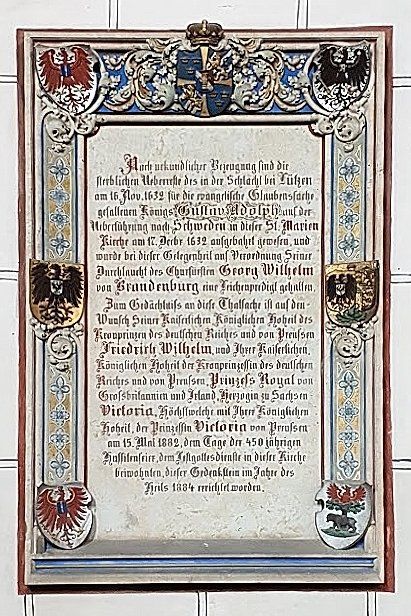 Nach urkundlicher Bezeugung sind die
sterblichen Ueberreste des in der Schlacht bei Lützen
am 16. Nov. 1632 für die evangelische Glaubenssache
gefallenen Königs Gustav Adolph auf der
Ueberführung nach Schweden in dieser St. Marien
Kirche am 17. Decbr 1632 aufgebahrt gewesen, und
wurde bei dieser Gelegenheit auf Verordnung Seiner
Durchlaucht des Churfürsten Georg Wilhelm
von Brandenburg eine Leichenpredigt gehalten.
Zum Gedächtniß an diese Thatsache ist auf den
Wunsch Seiner Kaiserlichen Königlichen Hoheit des
Kronprinzen des deutschen Reiches und von Preussen
Friedrich Wilhelm, und Ihrer Kaiserlichen,
Königlichen Hoheit der Kronprinzessin des deutschen
Reiches und von Preussen, Prinzess Royal von
Grossbritannien und Irland, Herzogin zu Sachsen
Victoria, Höchstwelche mit Ihrer Königlichen
Hoheit, der Prinzessin Victoria von Preussen
am 15. Mai 1882, dem Tage der 450 jährigen
Hussitenfeier, dem Festgottesdienste in dieser Kirche
beiwohnten, dieser Gedenkstein im Jahre des
Heils 1884 errichtet worden.